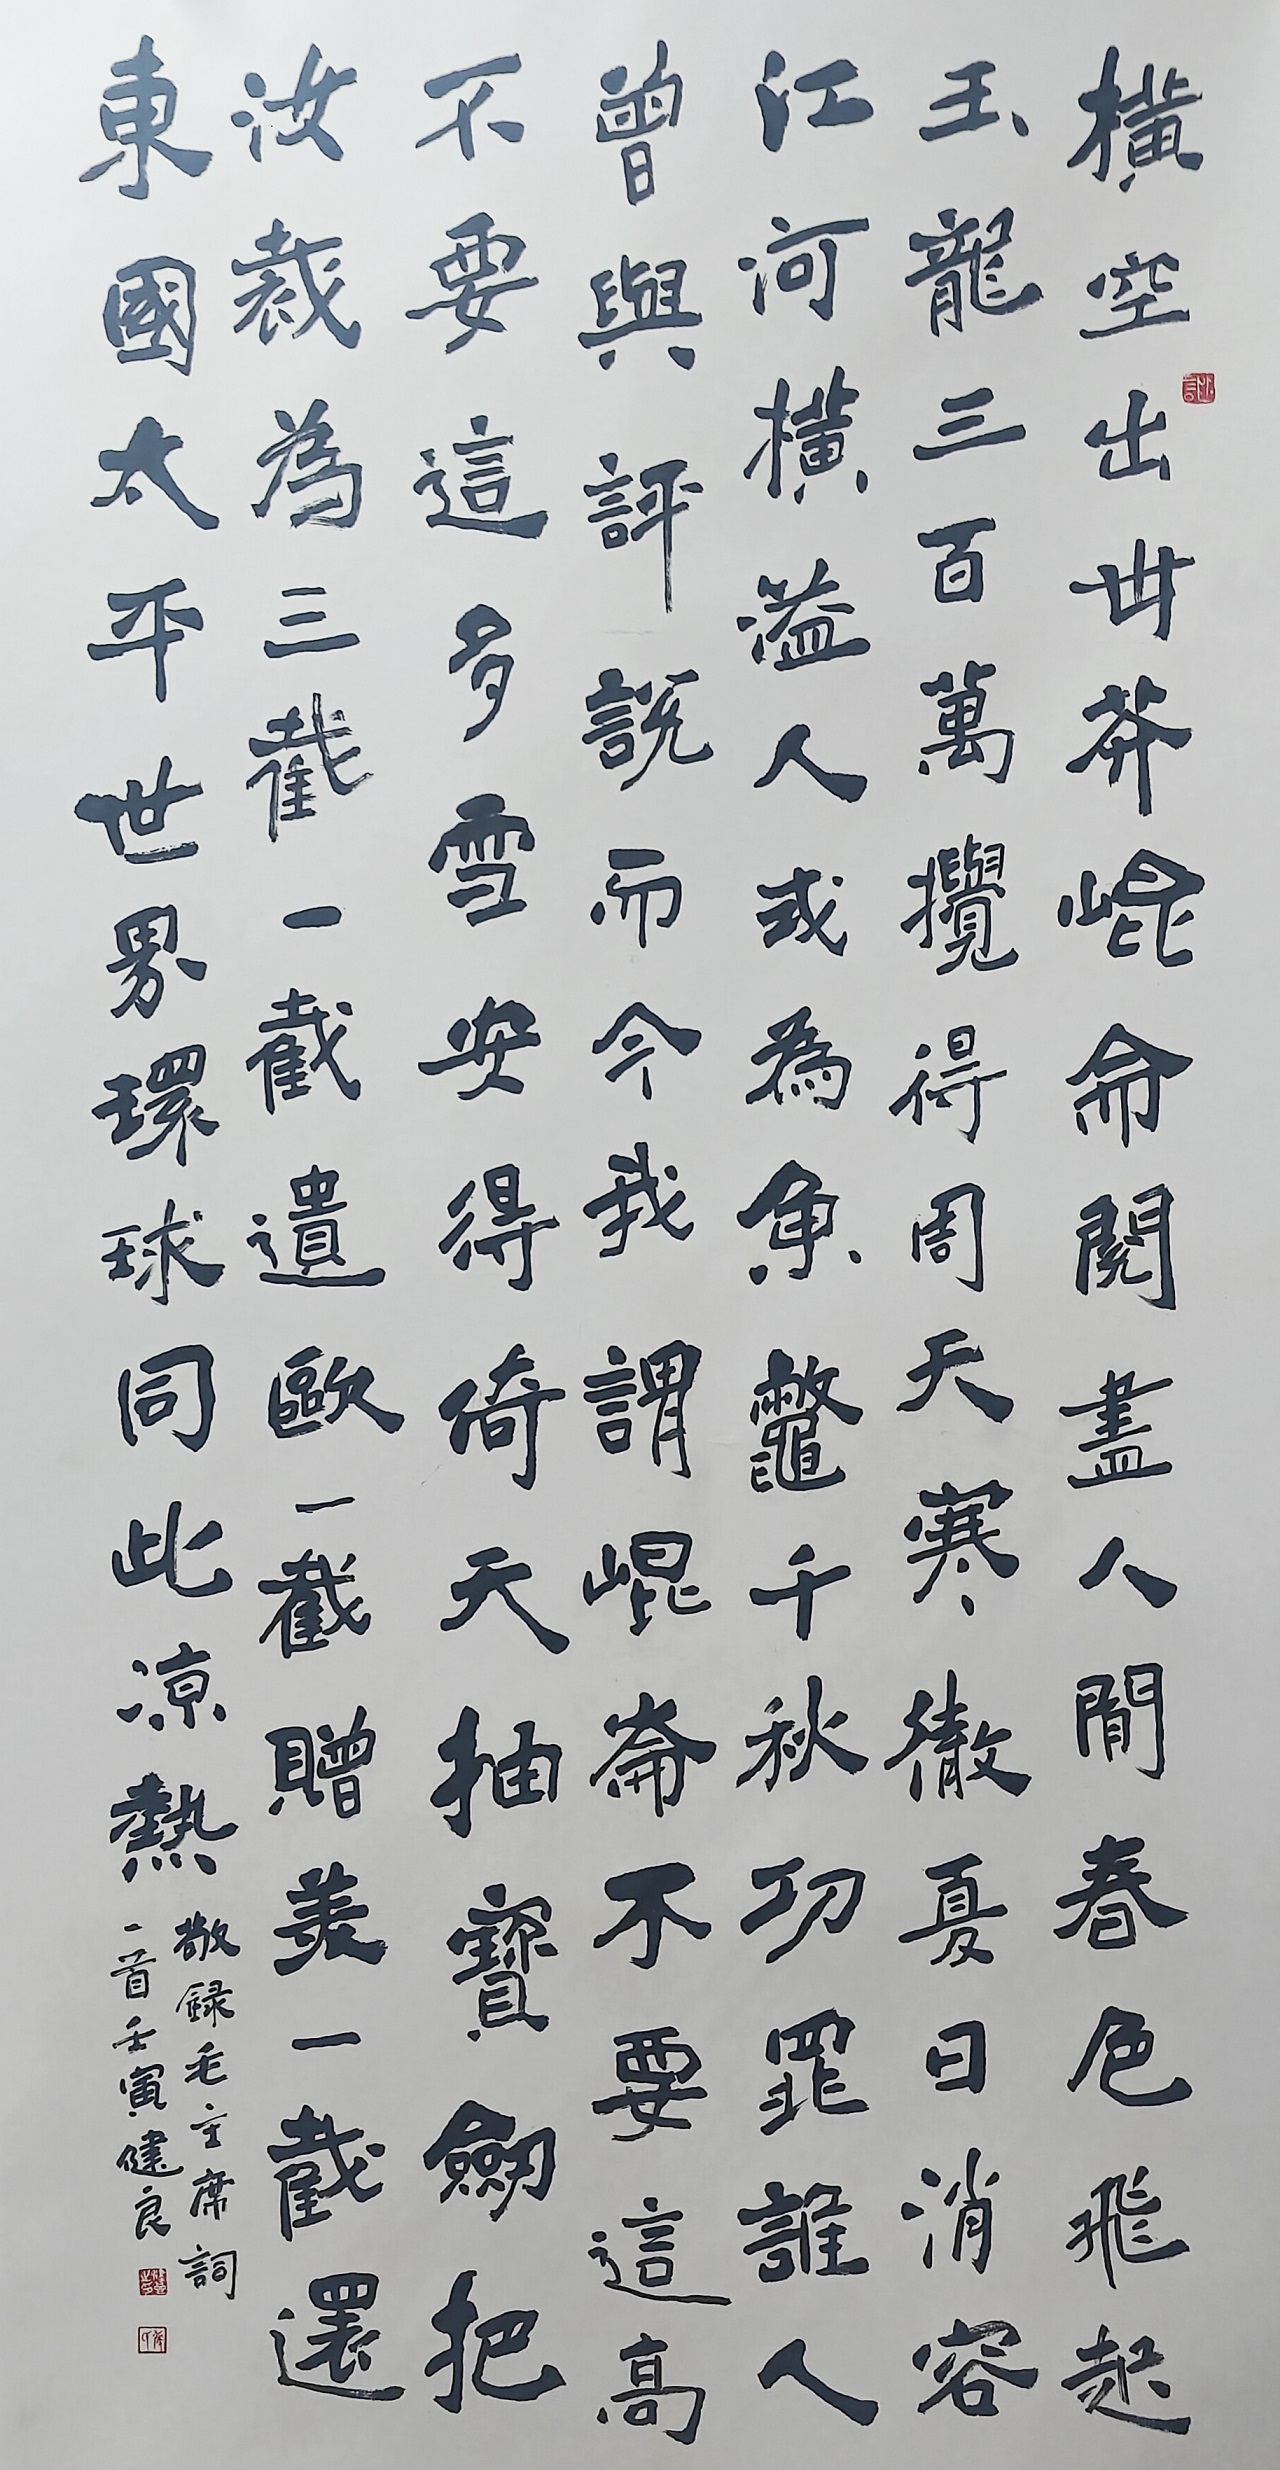 橫空出世莽崐侖閱盡人間春色飛起
玉龍三百萬攪得周天寒徹夏日消容
江河橫溢人或為魚鼈千秋功罪誰人
曾與評說而今我謂崐崙不要這高
不要這多雪安得倚天抽寶劒把
汝裁為三截一截遺歐一截贈美一截還
東國太平世界環球同此凉熱
敬録毛主席詞
一首壬寅健良